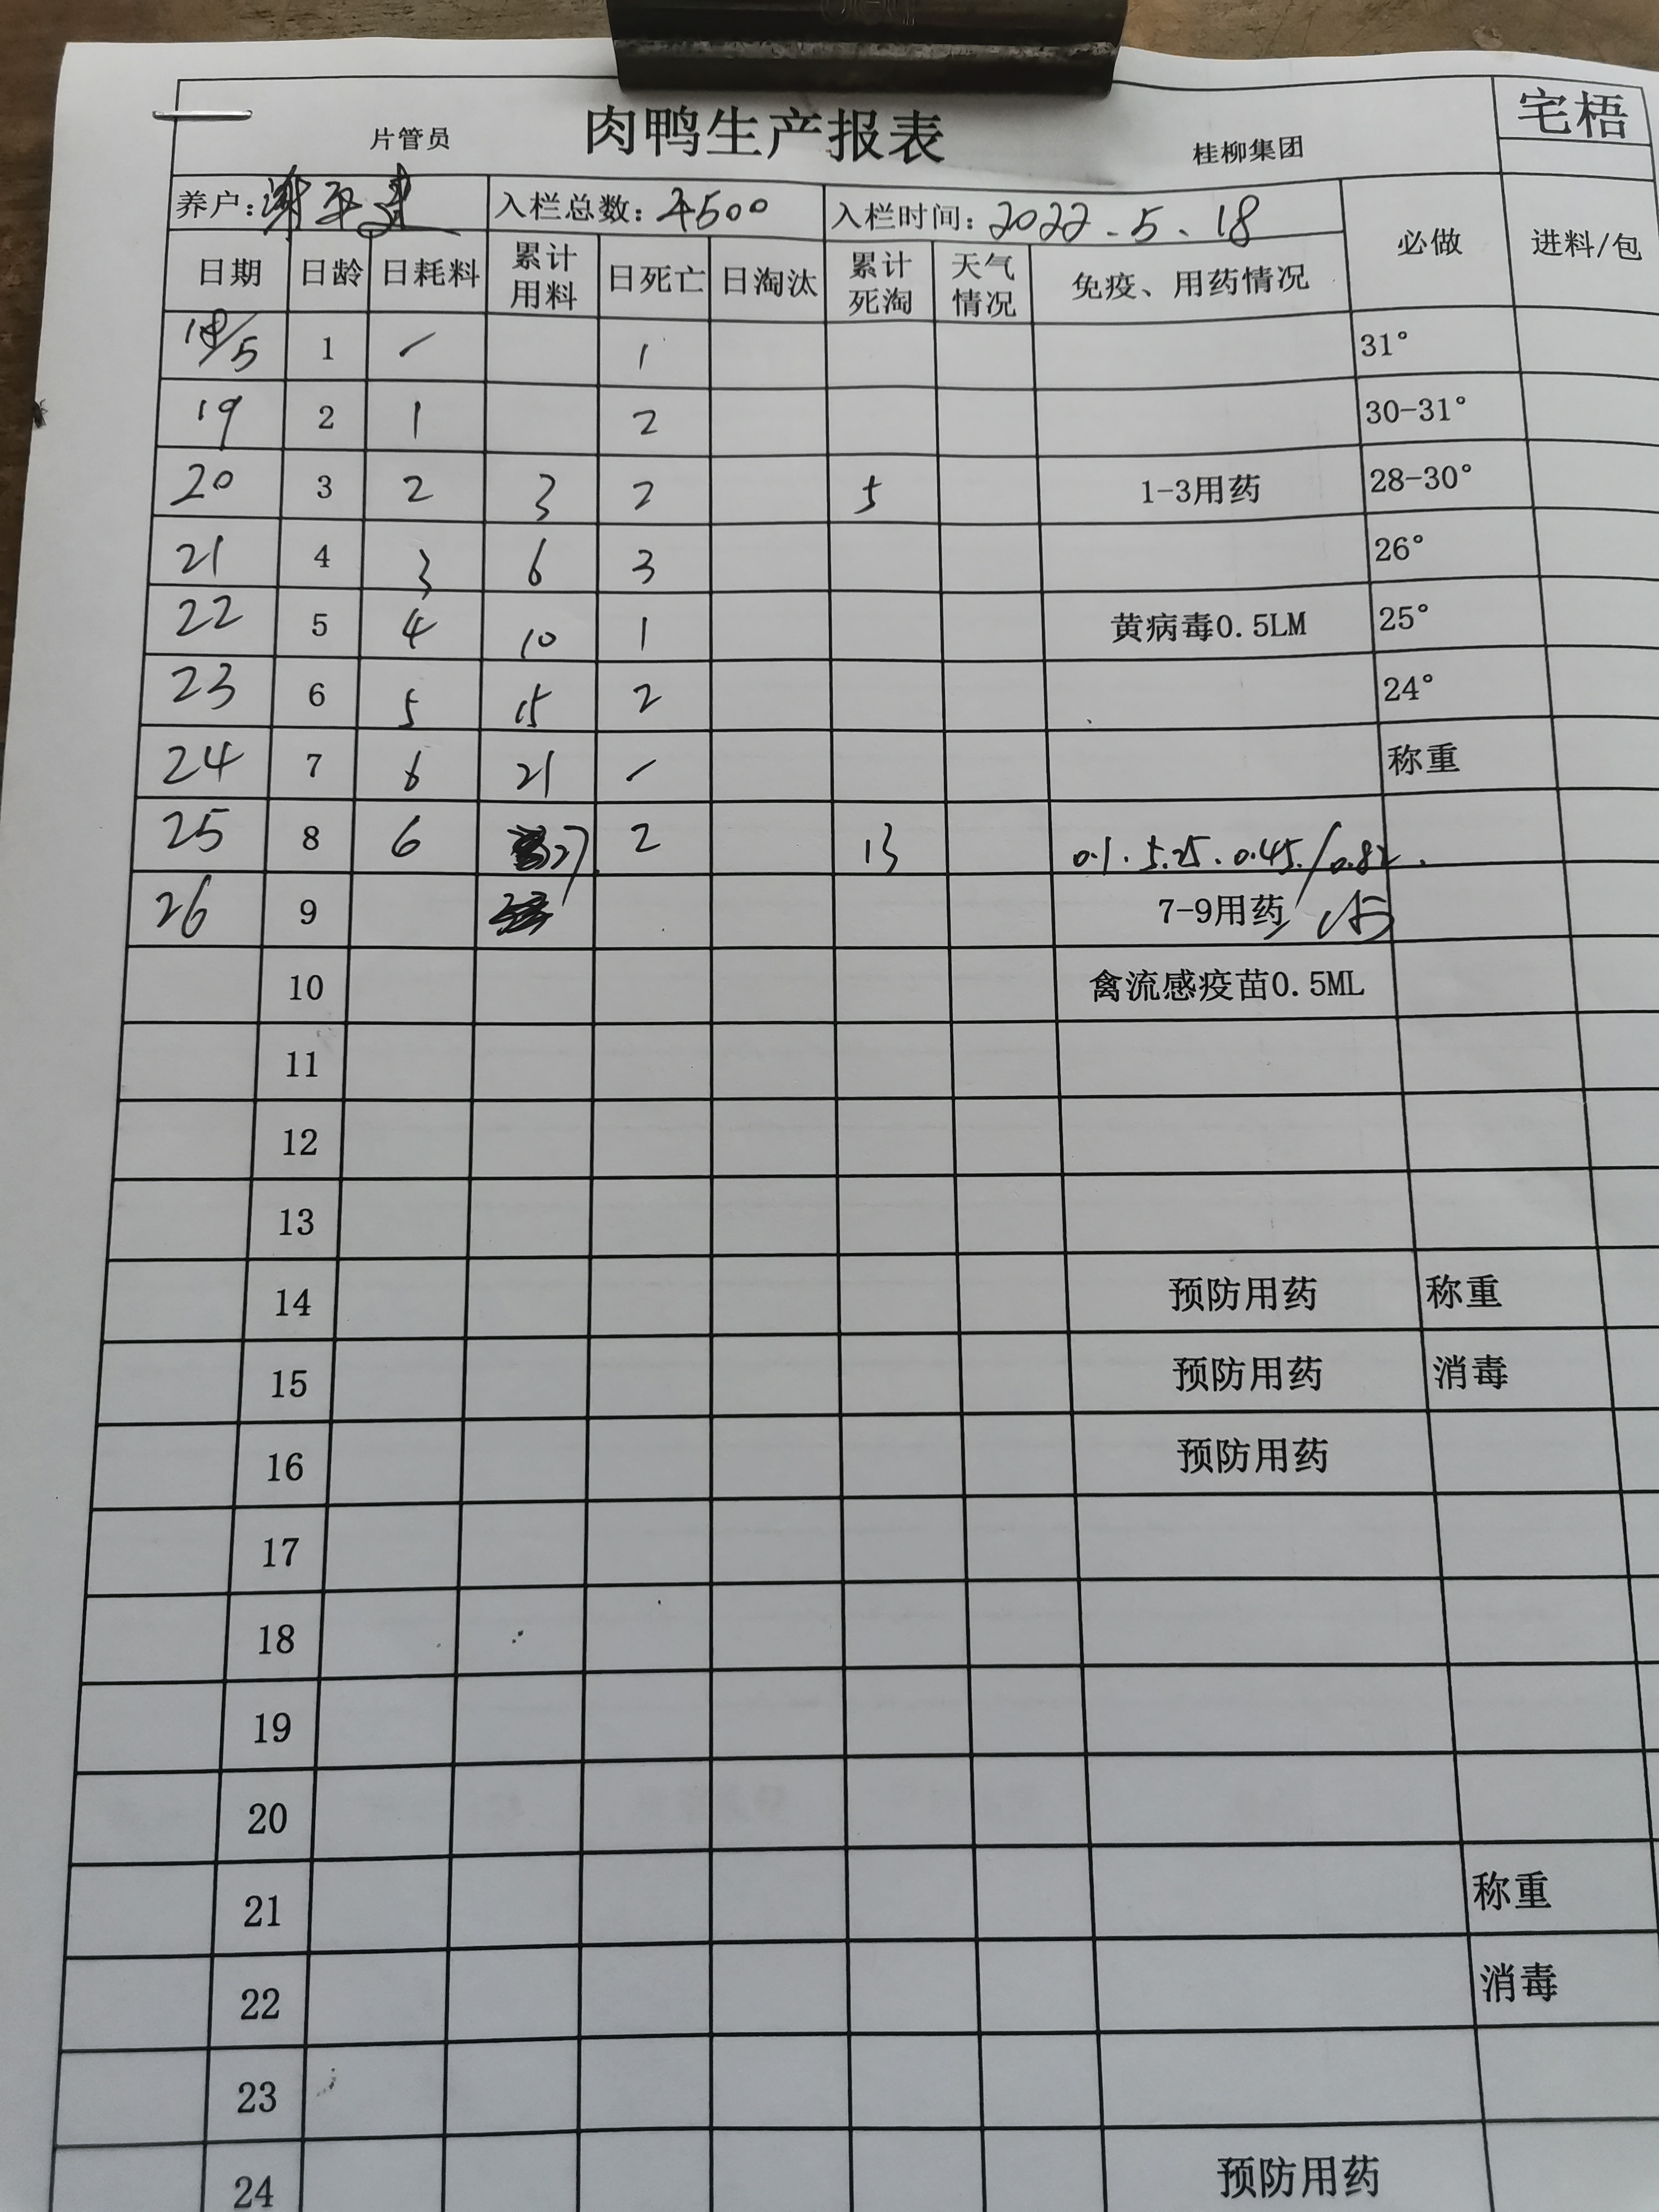 宅梧
片管员 肉鸭生产报表 桂柳集团
养户: 入栏总数: 4500 入栏时间: 2022.5.18 必做 进料/包
日期 日龄 日耗料 累计用料 日死亡 日淘汰 累计死淘 天气情况 免疫、用药情况
18/5 1 1 31°
19 2 1 2 30-31°
20 3 2 3 2 5 1-3用药 28-30°
21 4 3 6 3 26°
22 5 4 10 1 黄病毒0.5LM 25°
23 6 5 15 2 24°
24 7 6 21 称重
25 8 6 27 2 13 0.1.5.25.0.45./0.82.
26 9 7-9用药
10 禽流感疫苗0.5ML
11
12
13
14 预防用药 称重
15 预防用药 消毒
16 预防用药
17
18
19
20
21 称重
22 消毒
23
24 预防用药